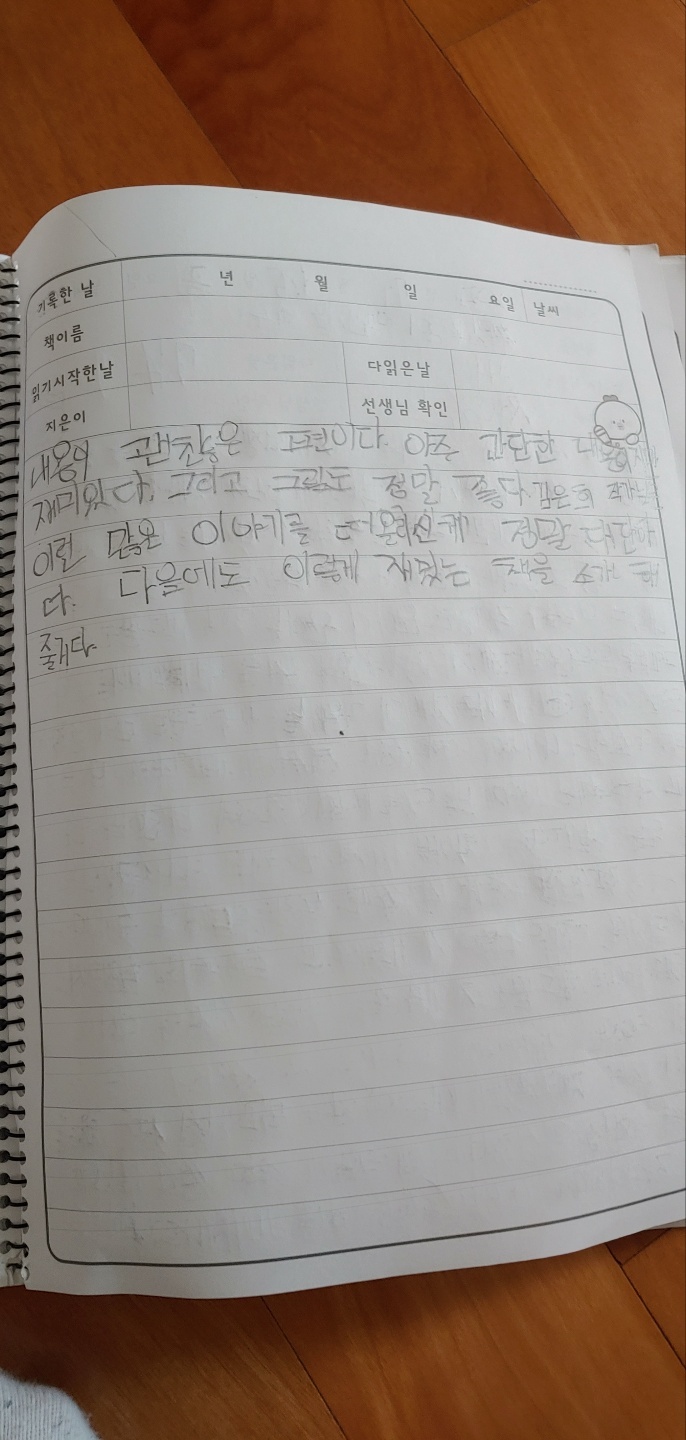 기록한 날 년 월 일 요일 날씨
책이름
읽기시작한날 다읽은날
지은이 선생님 확인
내용이 괜찮은 편이다. 아주 간단한
재미있다. 그리고 그림도 정말 좋다. 김은희
이런 많은 이야기를 떠올리신게 정말 대단하
다. 다음에도 이렇게 재밌는 책을 소개 해
줄거다.